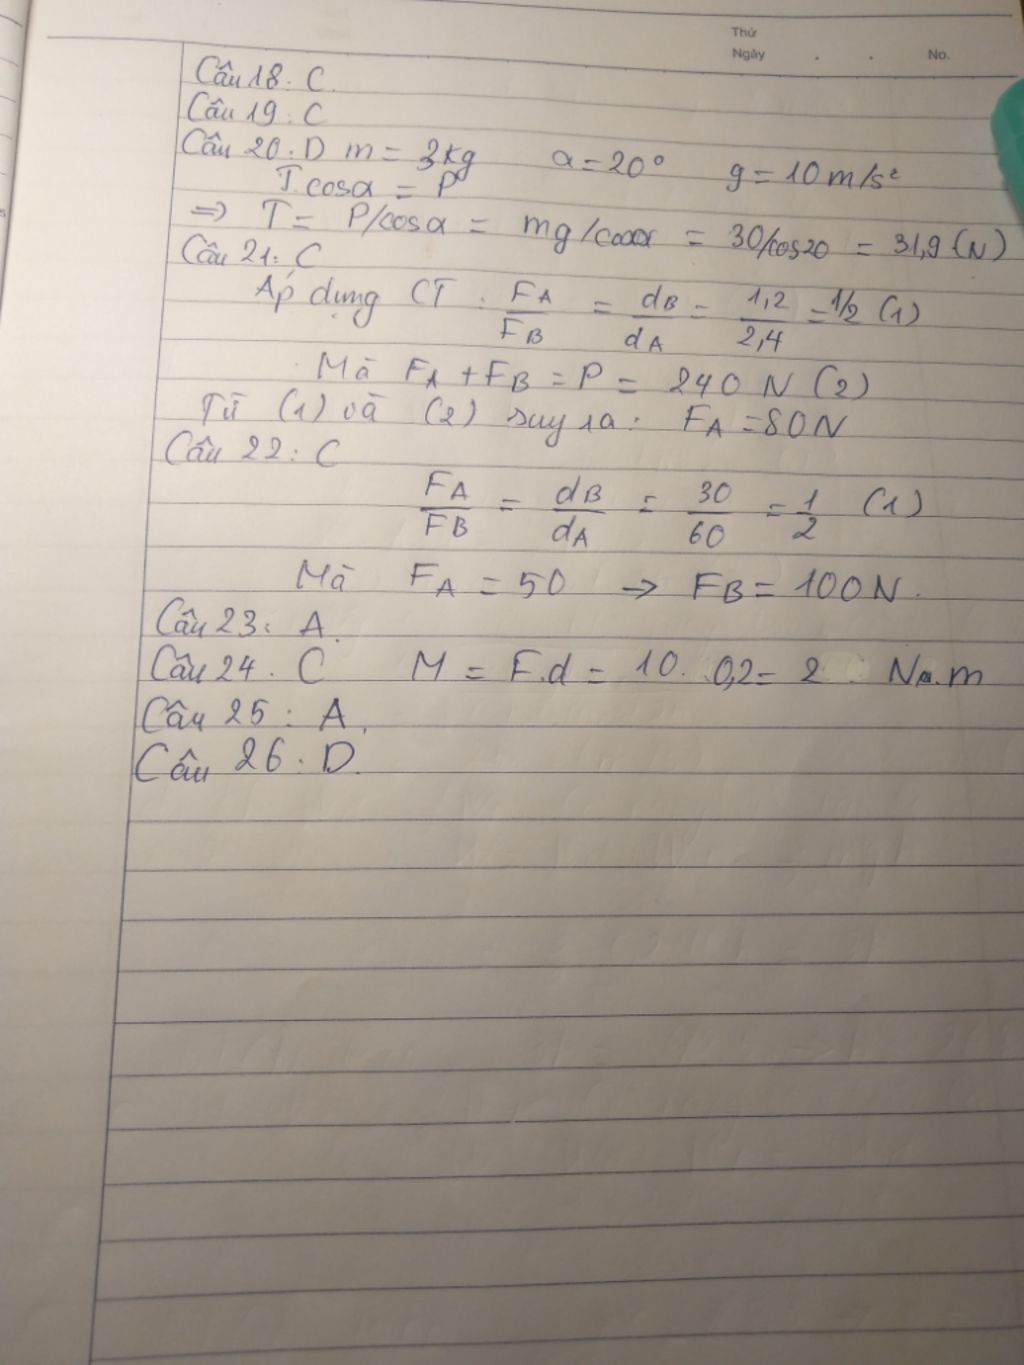 Thứ
Ngày . . No.
Câu 18. C.
Câu 19: C
Câu 20: D m = 3kg α = 20° g = 10 m/s²
T.cosα = P
=> T = P/cosα = mg/cosα = 30/cos20 = 31,9 (N)
Câu 21: C
Áp dụng CT: FA/FB = dB/dA = 1,2/2,4 = 1/2 (1)
Mà FA + FB = P = 240 N (2)
Từ (1) và (2) suy ra: FA = 80N
Câu 22: C
FA/FB = dB/dA = 30/60 = 1/2 (1)
Mà FA = 50 → FB = 100N.
Câu 23: A.
Câu 24. C M = F.d = 10. 0,2 = 2 N.m
Câu 25: A.
Câu 26: D.